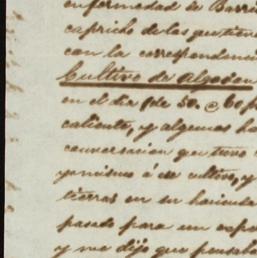 enfermedad de Barri
capricho de las que tiene
con la correspondenci
Cultivo de Algodon
en el dia (de 50. @ 60 p
caliente, y algunos ha
conversacion que tuve
á su cultivo, y
tierras en su hacienda
pasado para un espe
y me dijo que pensaba